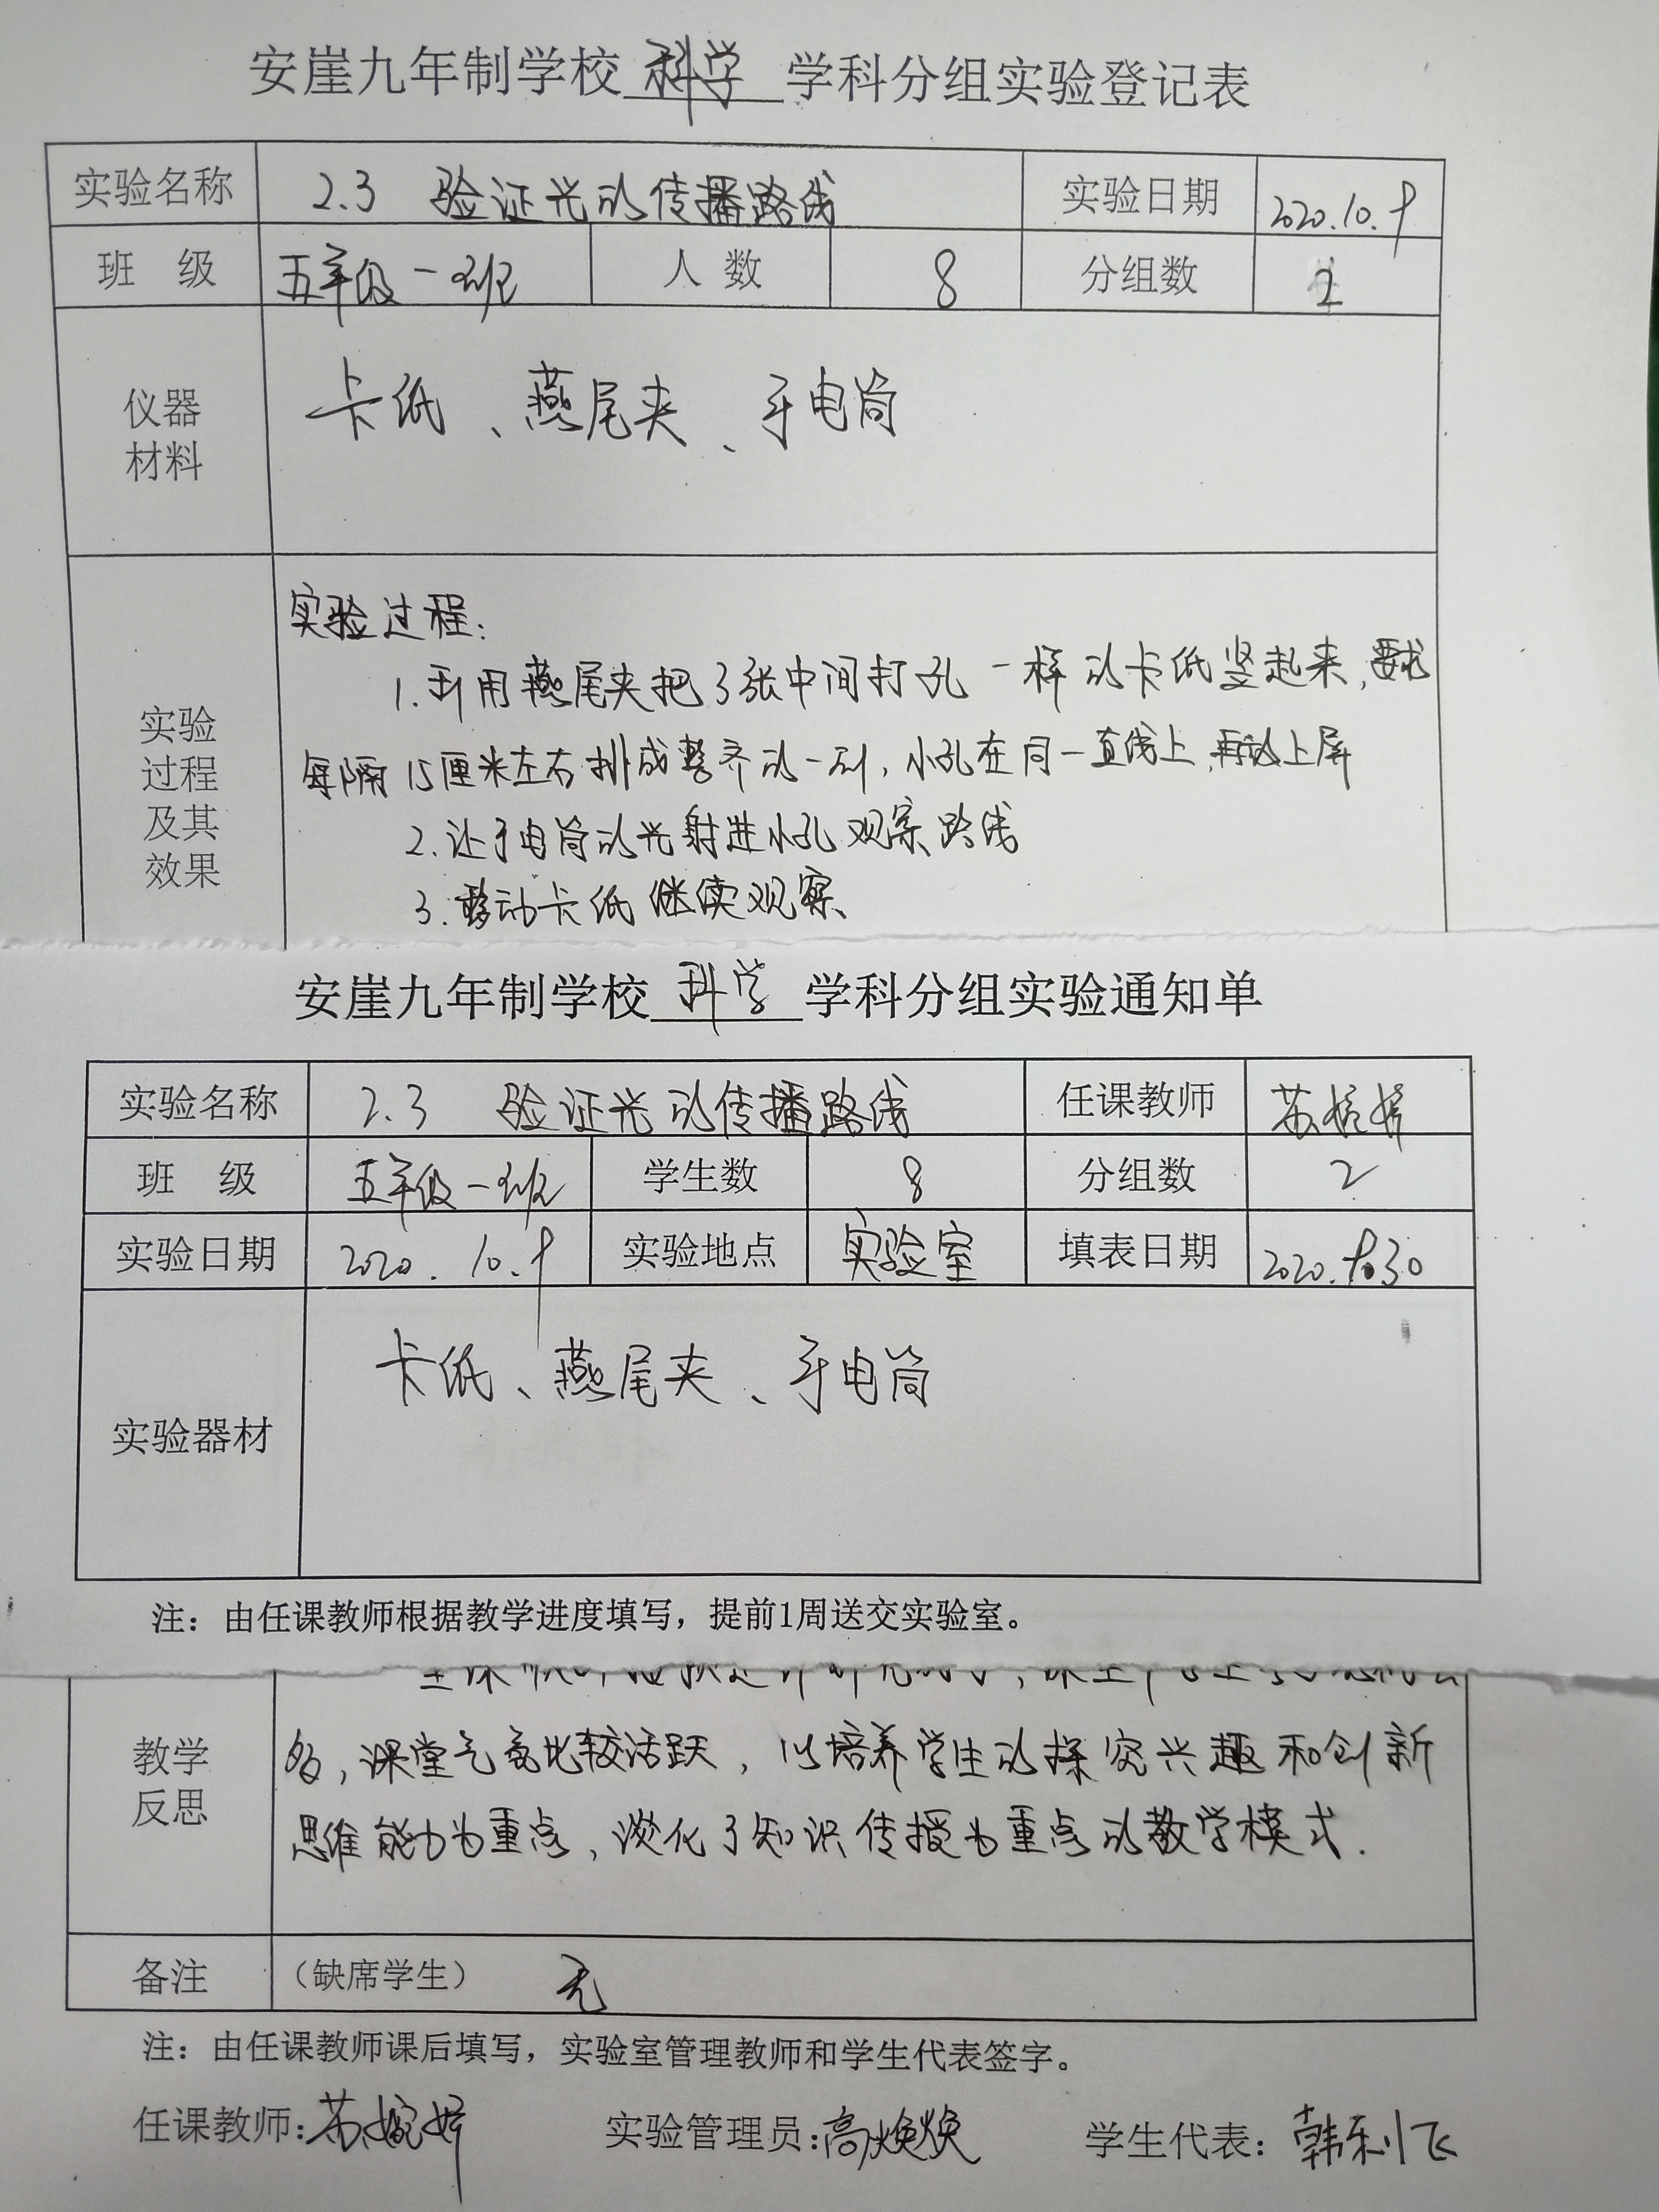 安崖九年制学校 科学 学科分组实验登记表
实验名称 2.3 验证光的传播路线 实验日期 2020.10.9
班 级 五年级一班 人 数 8 分组数 2
仪器 材料 卡纸、燕尾夹、手电筒
实验过程:
1.利用燕尾夹把3张中间打孔一样的卡纸竖起来,要求
实验过程及其效果
每隔15厘米左右排成整齐的一列,小孔在同一直线上,再放上屏
2.让手电筒的光射进小孔观察路线
3.移动卡纸继续观察
安崖九年制学校 科学 学科分组实验通知单
实验名称 2.3 验证光的传播路线 任课教师 苏婉婷
班 级 五年级一班 学生数 8 分组数 2
实验日期 2020.10.9 实验地点 实验室 填表日期 2020.9.30
实验器材 卡纸、燕尾夹、手电筒
注:由任课教师根据教学进度填写,提前1周送交实验室。
教学反思
多,课堂气氛比较活跃,以培养学生的探究兴趣和创新
思维能力为重点,淡化了知识传授为重点的教学模式.
备注 (缺席学生) 无
注:由任课教师课后填写,实验室管理教师和学生代表签字。
任课教师:苏婉婷 实验管理员:高焕焕 学生代表:韩利飞